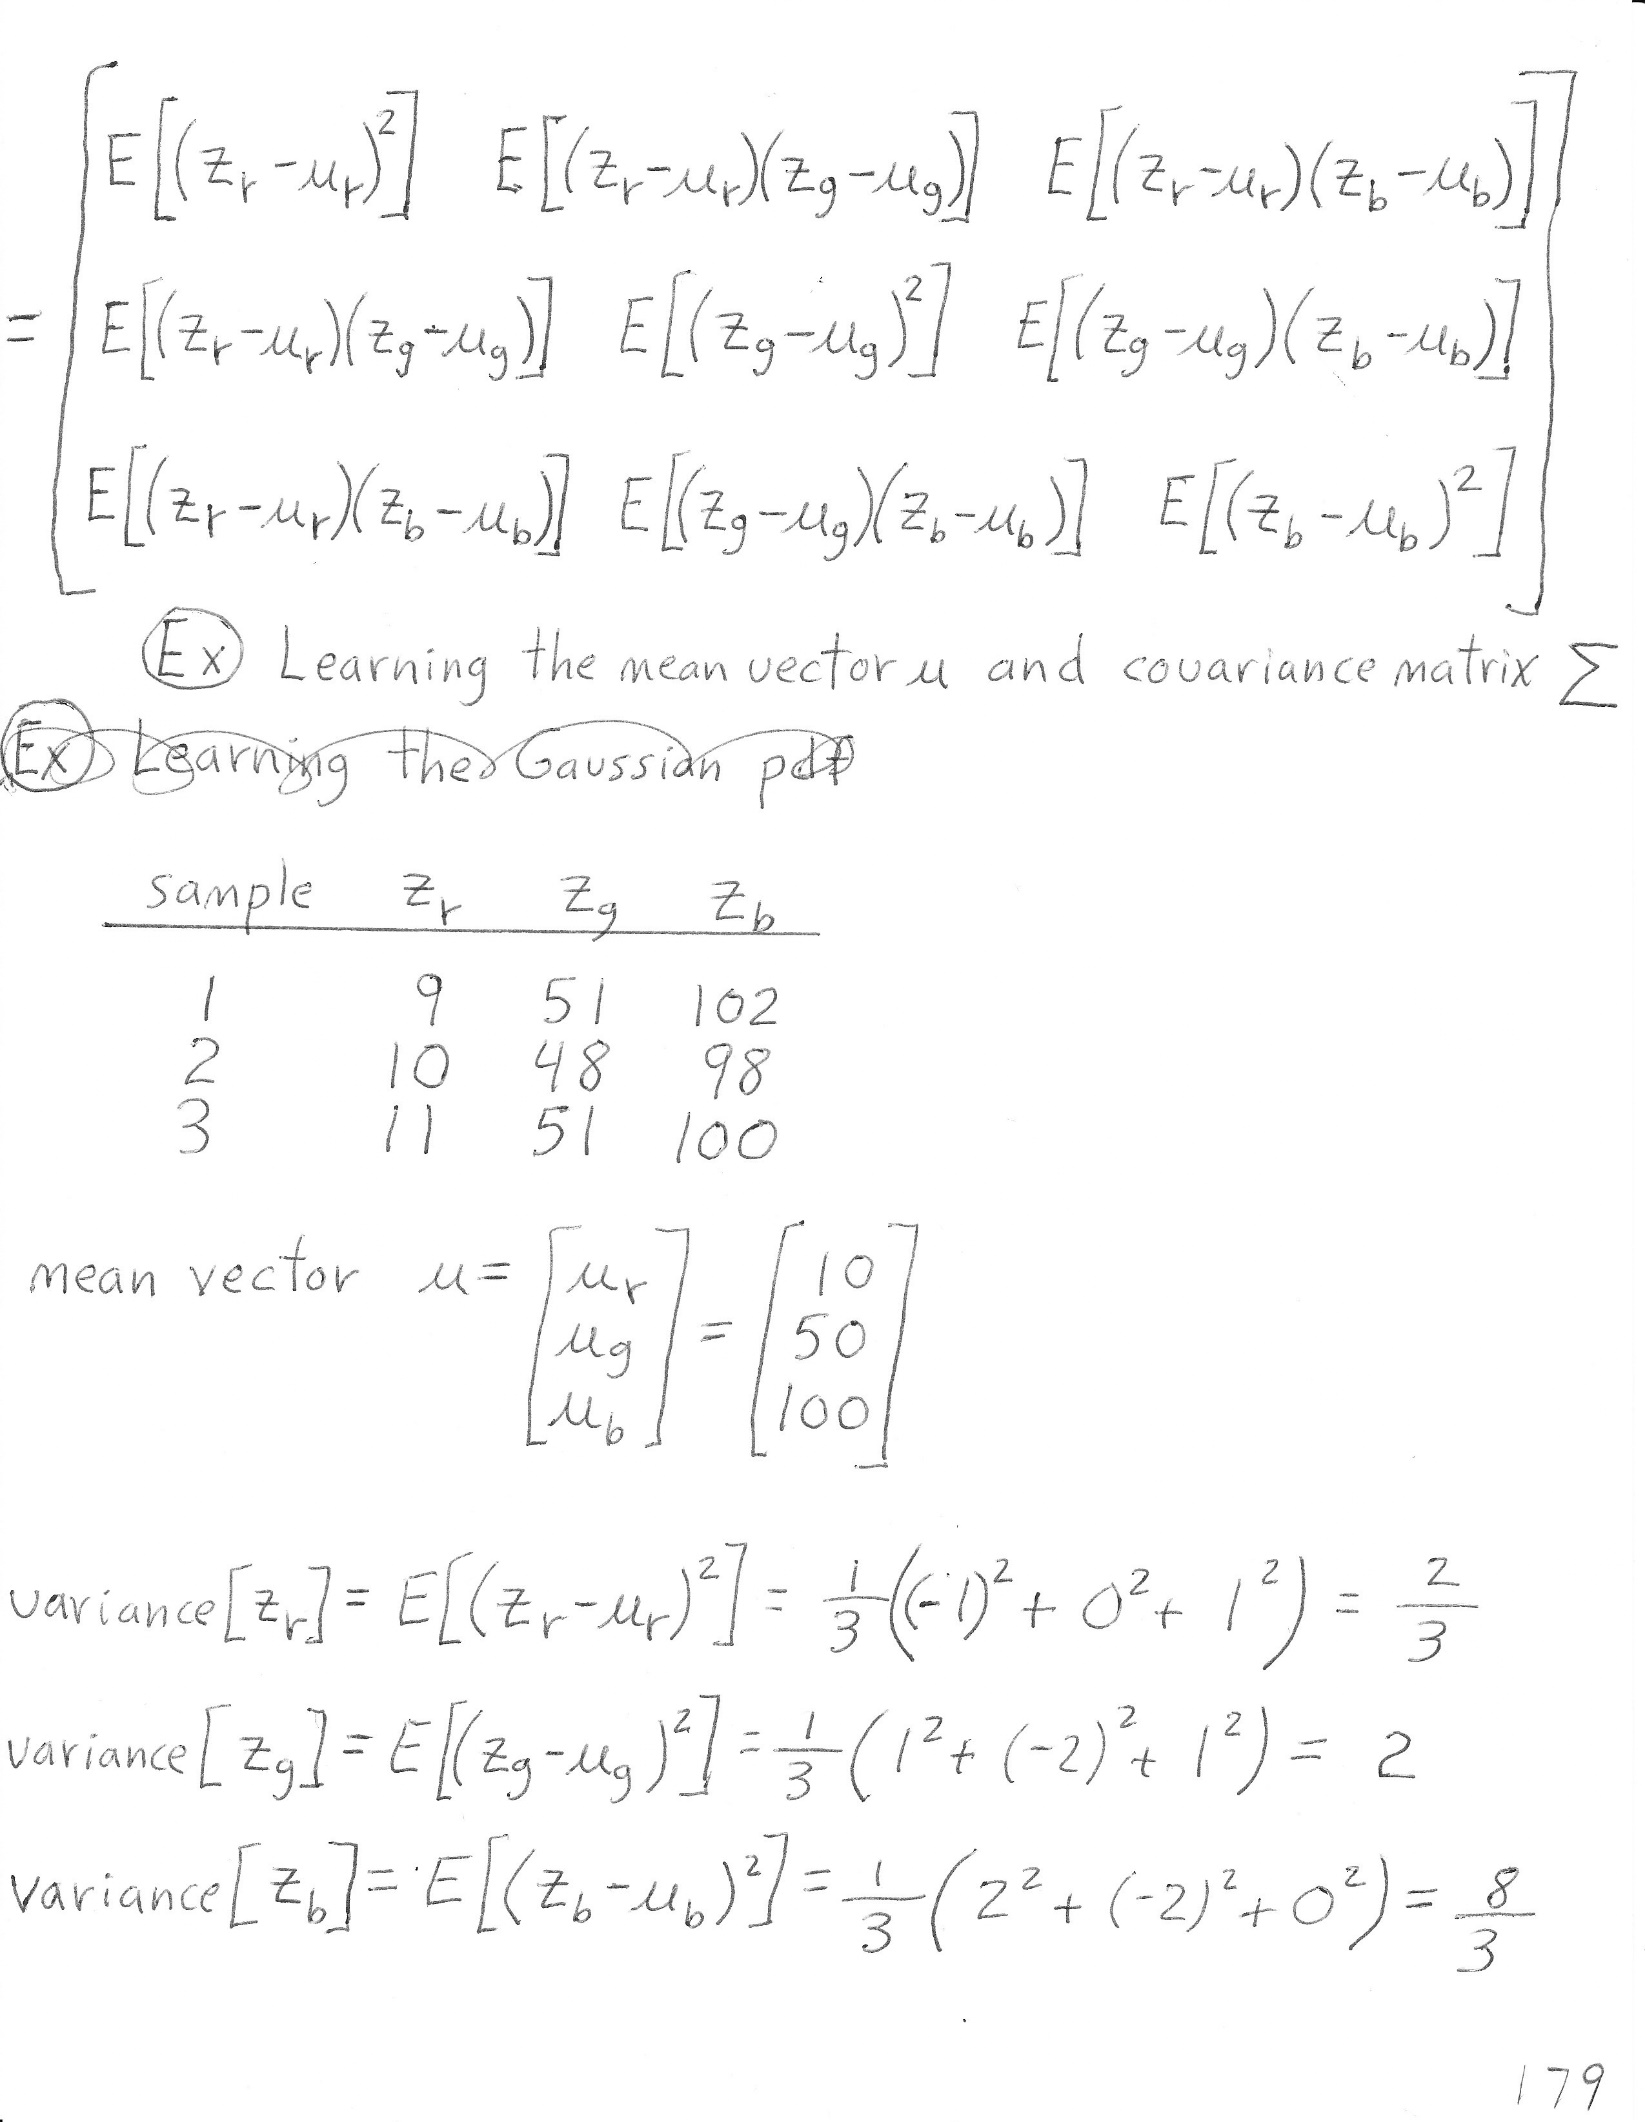 E[(z_r - μ_r)²] E[(z_r - μ_r)(z_g - μ_g)] E[(z_r - μ_r)(z_b - μ_b)]
= E[(z_r - μ_r)(z_g - μ_g)] E[(z_g - μ_g)²] E[(z_g - μ_g)(z_b - μ_b)]
E[(z_r - μ_r)(z_b - μ_b)] E[(z_g - μ_g)(z_b - μ_b)] E[(z_b - μ_b)²]
Ex Learning the mean vector μ and covariance matrix Σ
Ex Learning the Gaussian pdf
sample z_r z_g z_b
1 9 51 102
2 10 48 98
3 11 51 100
mean vector μ = [μ_r μ_g μ_b] = [10 50 100]
variance[z_r] = E[(z_r - μ_r)²] = 1/3 ((-1)² + 0² + 1²) = 2/3
variance[z_g] = E[(z_g - μ_g)²] = 1/3 (1² + (-2)² + 1²) = 2
variance[z_b] = E[(z_b - μ_b)²] = 1/3 (2² + (-2)² + 0²) = 8/3
179